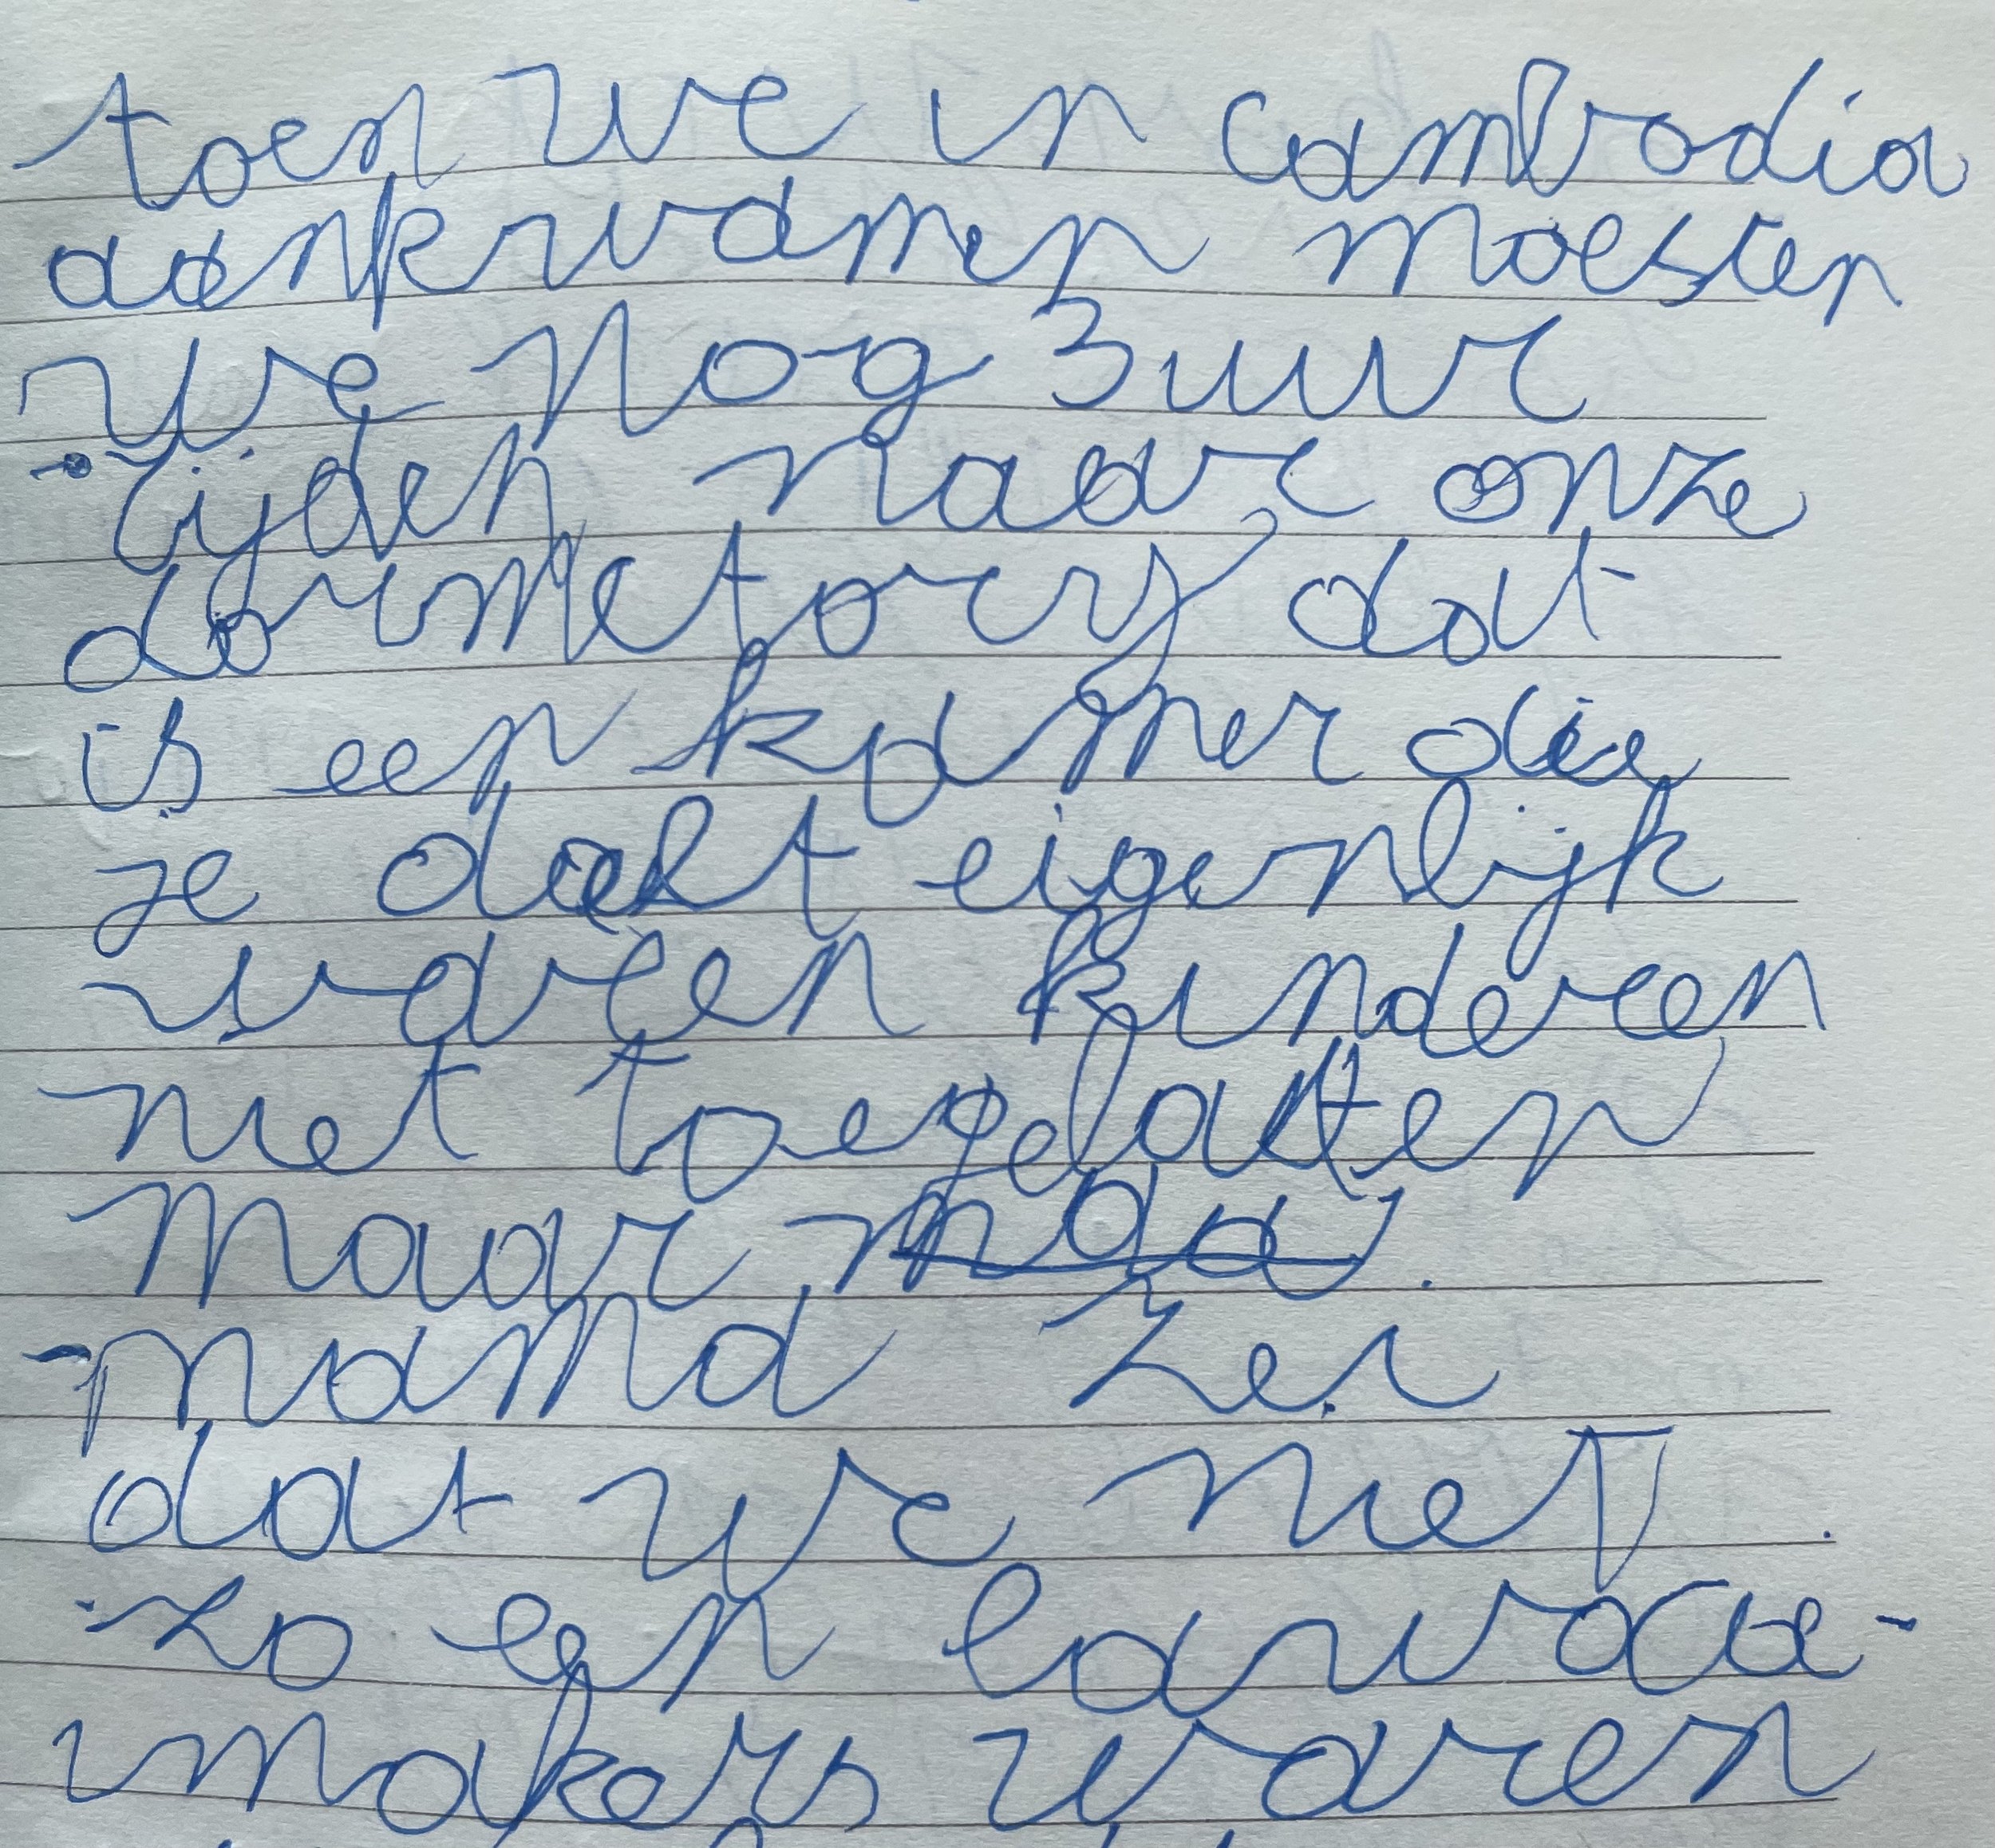 toen we in Cambodia
aankwamen moesten
we nog 3 uur
rijden naar onze
dormetory, dat
is een kamer die
je deelt eigenlijk
waren kinderen
niet toegelatten
maar
mama zei
dat we niet
zo een lawaae-
makers waren